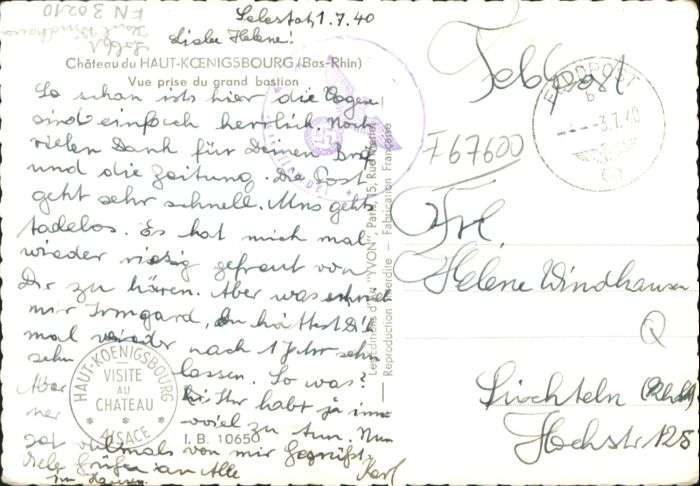 Selestat, 1.7.40
Soldat
Karl Windhausen
F N 30210
Liebe Helene!
Château du HAUT-KŒNIGSBOURG (Bas-Rhin)
Vue prise du grand bastion
So schön ists hier die Vogesen
sind einfach herrlich. Noch
vielen Dank für Deinen Brief
und die Zeitung. Die Post
geht sehr schnell. Uns gehts
tadelos. Es hat mich mal
wieder riesig gefreut von
Dir zu hören. Aber was schreibt
mir Irmgard, Du hättest Di
mal wieder nach 1 Jahr sehn
sehn lassen. So was?
Aber Ihr habt ja immer
viel zu tun. Nun
sei vielmals von mir gegrüßt.
Viele Grüße an Alle
im Hause.
Karl
HAUT-KOENIGSBOURG
VISITE
AU
CHATEAU
ALSACE
I. B. 10650
Les Editions d'Art "YVON", Paris, 15, Rue Martel
Reproduction Interdite — Fabrication Française
Feldpost
FELDPOST
b
-3.7.40
F 67600
Frl.
Helene Windhausen
Süchteln (Rhld)
Hochstr 128